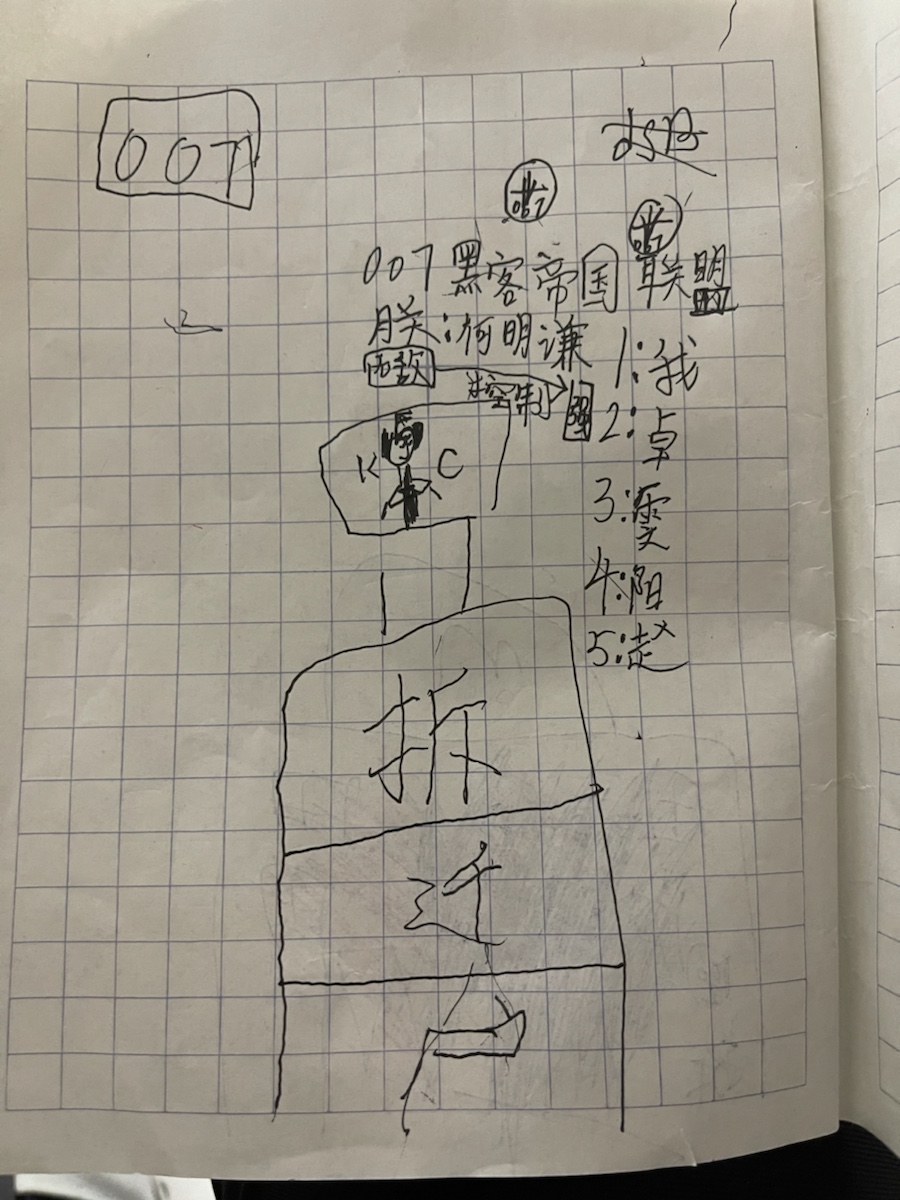 007
007黑客帝国联盟
朕:何明谦
控制
1:我
2:卓
3:雯
4:阳
5:赵
K C
拆
迁